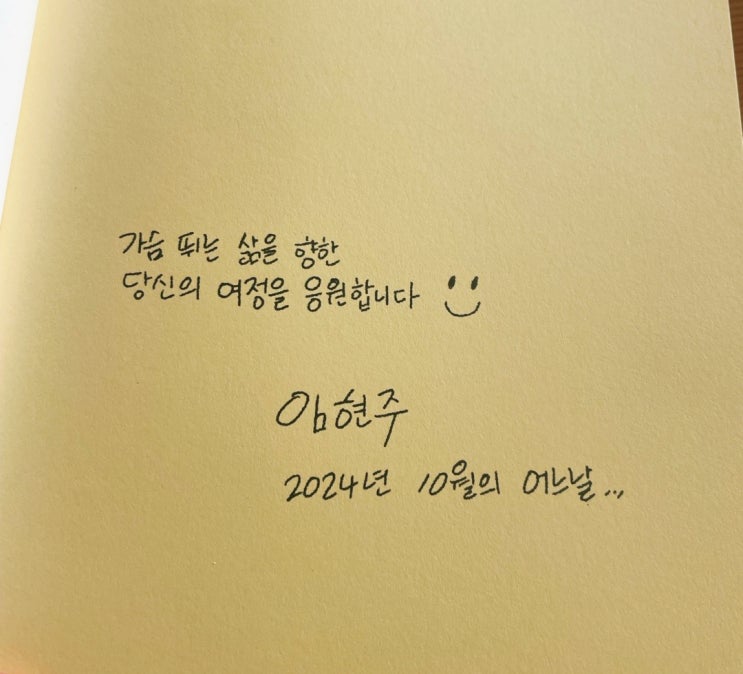 가슴 뛰는 삶을 향한
당신의 여정을 응원합니다
임현주
2024년 10월의 어느날...